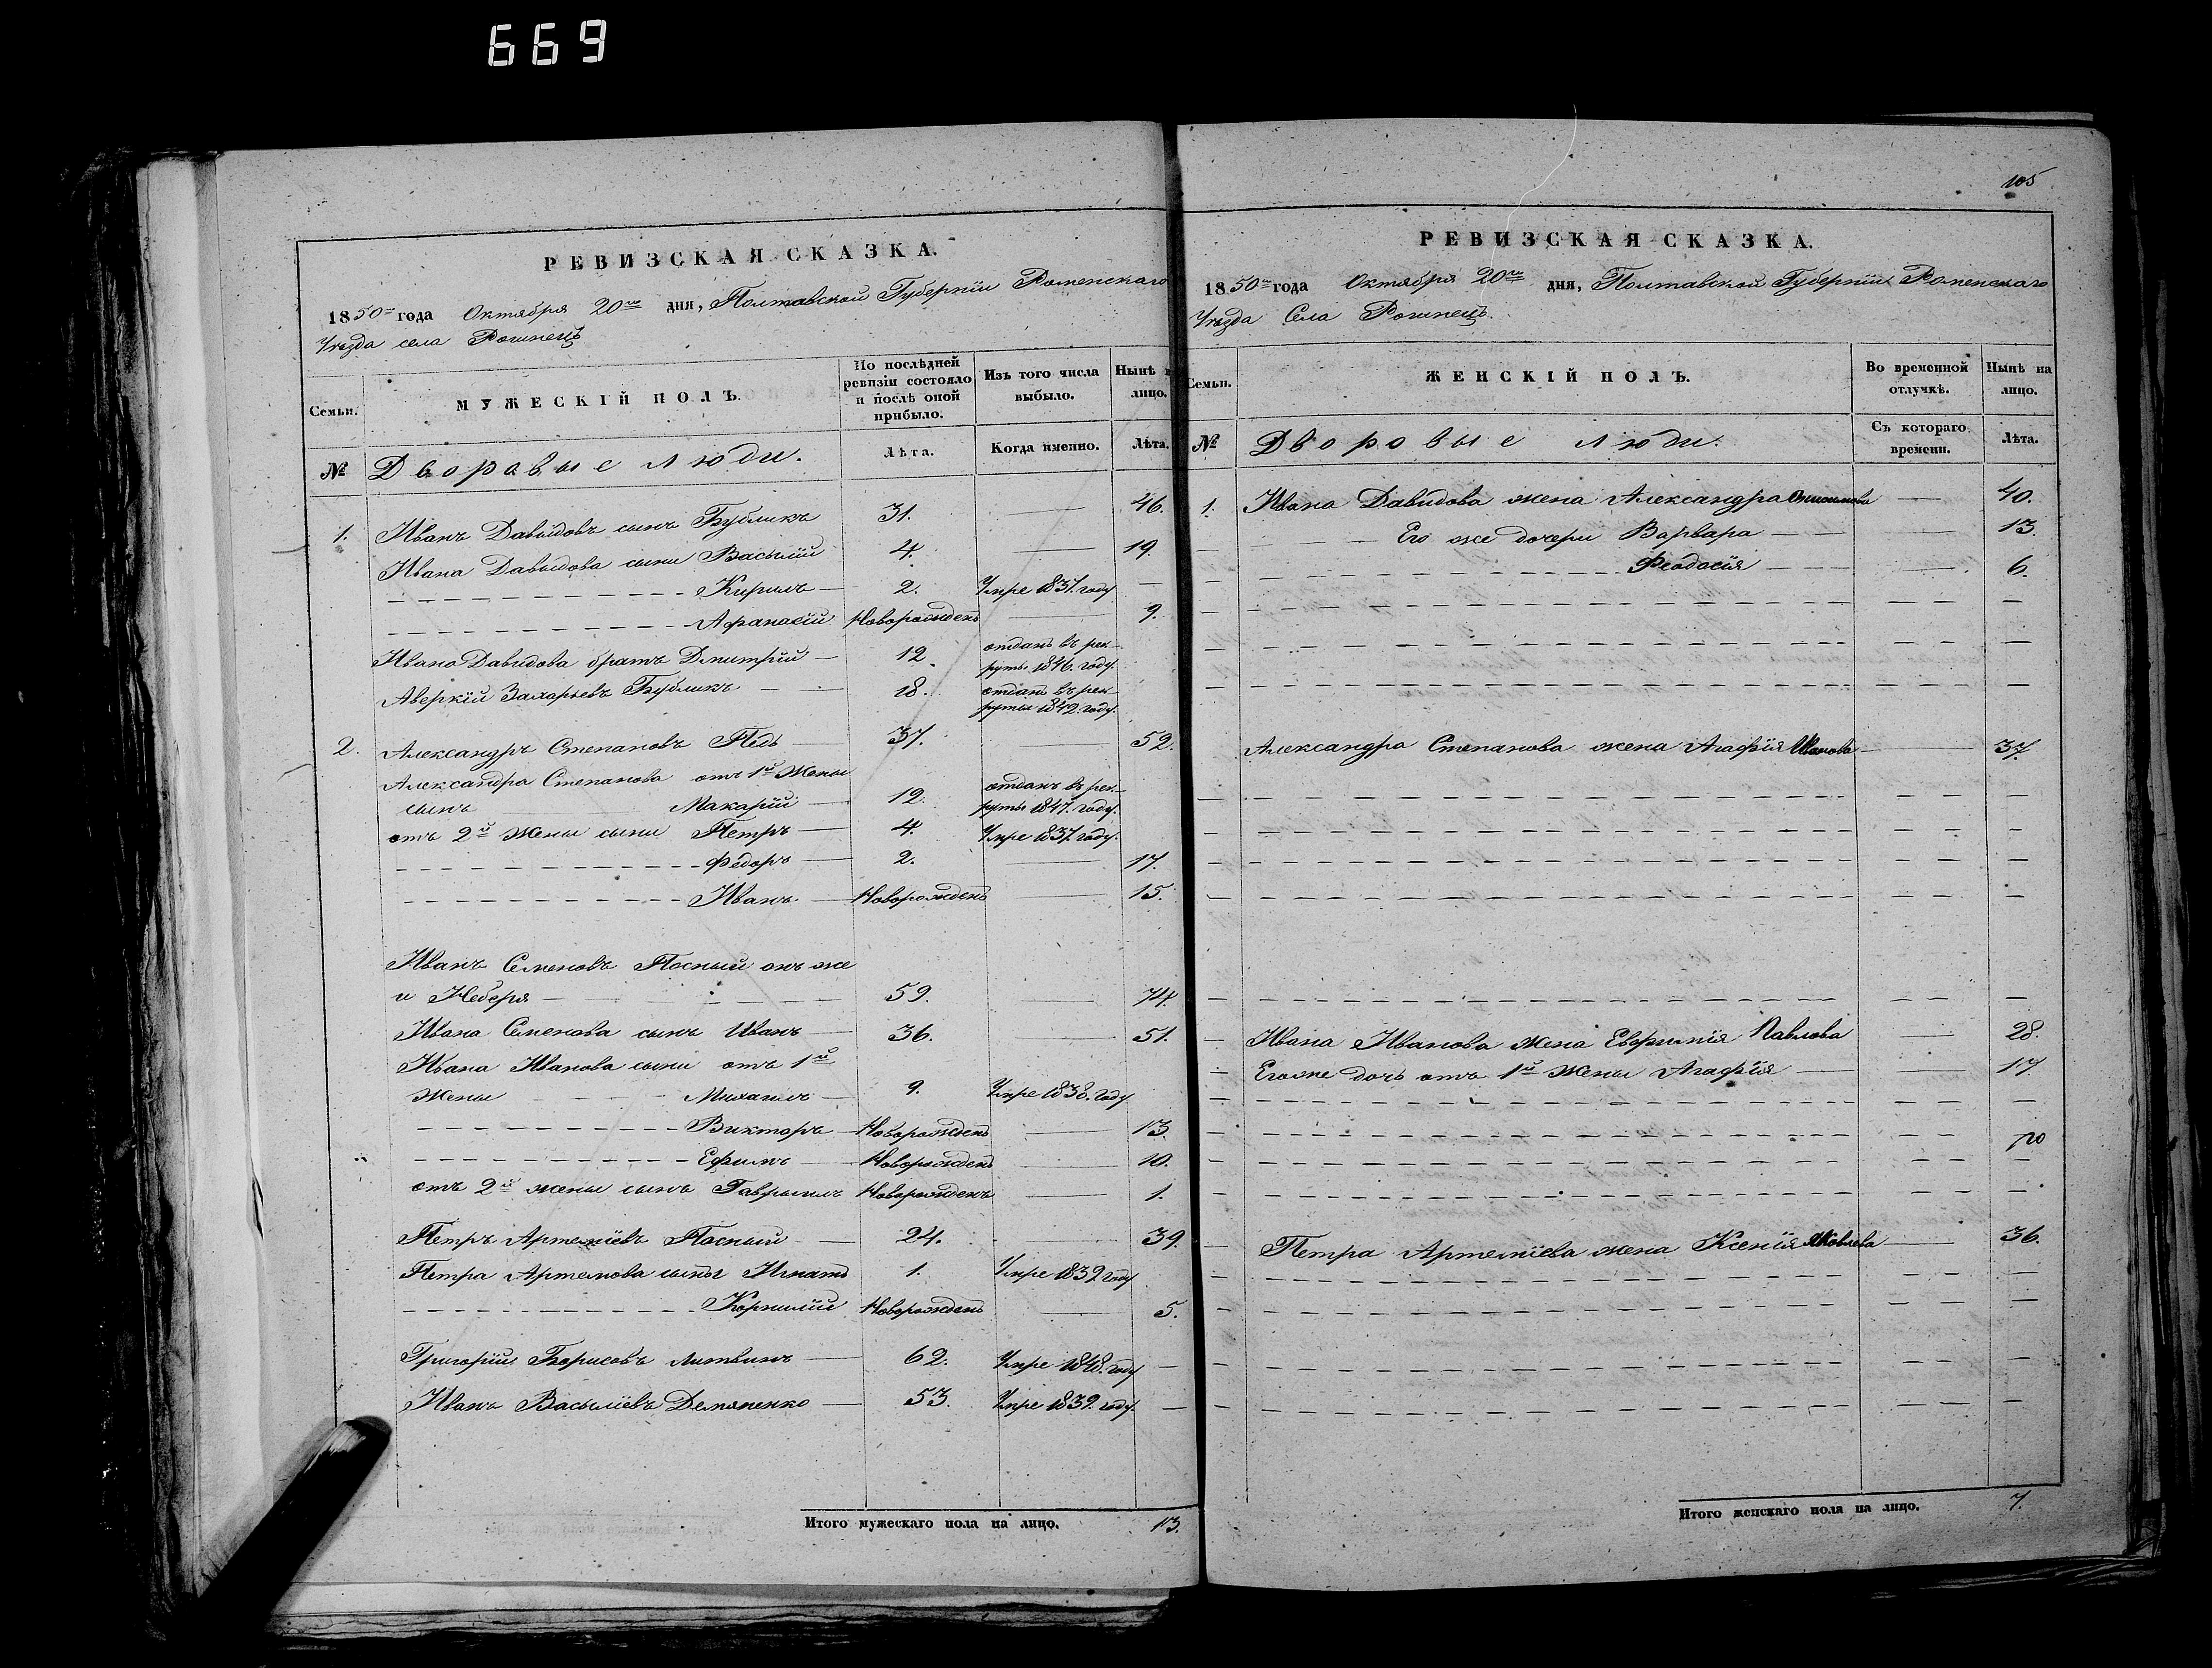 669
РЕВИЗСКАЯ СКАЗКА.
1850го года Октября 20го дня, Полтавской Губерніи Роменскаго
Уезда села Рогинецъ
Семьи.
МУЖЕСКІЙ ПОЛЪ.
По послѣдней ревизіи состояло и послѣ оной прибыло.
Изъ того числа выбыло.
Нынѣ на лицо.
№ Дворавые люди.
Лѣта.
Когда именно.
Лѣта.
1. Иванъ Давыдовъ сынъ Бубликъ 31. — 46.
Ивана Давыдова сыни Василій 4. — 19.
Кирилъ — 2. Умре 1837. году —
Афанасій Новорожденъ — 9.
Ивана Давидова братъ Дмитрій — 12. отданъ въ рек-
руты 1846. году.
Аверкій Захарьевъ Бубликъ — 18. отданъ въ рек-
руты 1842. году.
2. Александръ Степановъ Педь — 37. — 52.
Александра Степанова отъ 1й Жены
сынъ Макарій — 12. отданъ в рек-
руты 1847. году.
отъ 2й Жены сыни Петръ — 4. Умре 1837. году.
Фёдоръ — 2. — 17.
Иванъ — Новорожденъ — 15.
Иванъ Семеновъ Посный онъ же
и Неберя — 59. — 74.
Ивана Семенова сынъ Иванъ — 36. — 51.
Ивана Иванова сыни отъ 1й
Жены Михаилъ — 9. Умре 1838. году
Викторъ — Новорожденъ — 13.
Ефимъ — Новорожденъ — 10.
отъ 2й жены сынъ Гаврыилъ Новорожденъ — 1.
Петръ Артеміевъ Посный — 24. — 39.
Петра Артемова сыны Игнатъ 1. Умре 1839 году
Корнилій Новорожденъ — 5.
Григорій Борисовъ Литвинъ — 62. Умре 1848. году —
Иванъ Васыліевъ Демяненко — 53. Умре 1839. году. —
Итого мужескаго пола на лицо. 13.
105
РЕВИЗСКАЯ СКАЗКА.
1850го года Октября 20го дня, Полтавской Губерніи Роменскаго
Уезда Села Рогинецъ.
Семьи.
ЖЕНСКІЙ ПОЛЪ.
Во временной отлучкѣ.
Нынѣ на лицо.
№ Дворовые люди.
Съ котораго времени.
Лѣта.
1. Ивана Давидова жена Александра Онисимова — 40.
Его же дочери Варвара — 13.
Феодосія — 6.
Александра Степанова жена Агафія Иванова — 37.
Ивана Иванова жена Евфимія Павлова — 28.
Егоже дочь отъ 1й Жены Агафія — 17.
Петра Артеміева жена Ксенія Яковлева — 36.
Итого женскаго пола на лицо. 7.